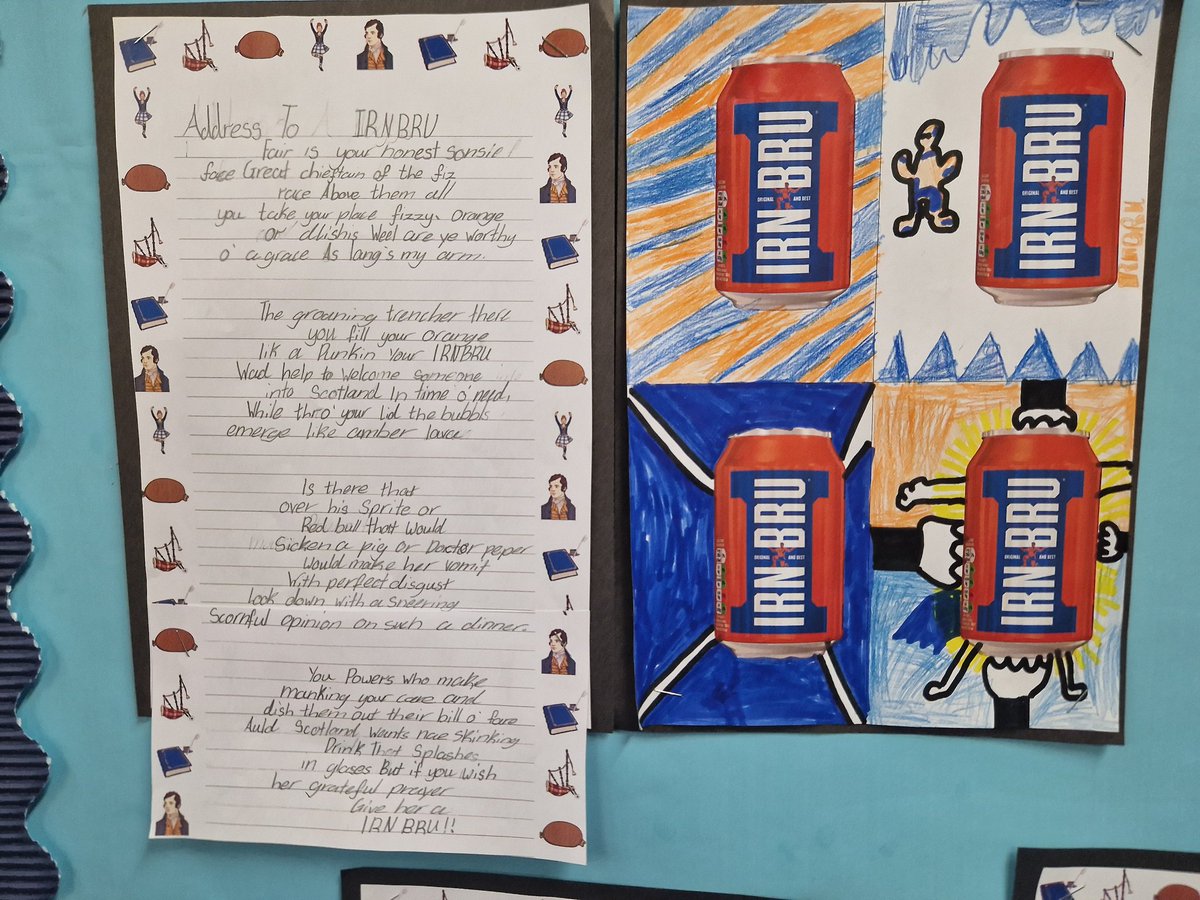 Address To IRNBRU
Fair is your honest sonsie
face Great chieftain of the fiz
race Above them all
you take your place fizzy, Orange
or dlishis Weel are ye worthy
o' a grace As lang's my arm.
The groaning trencher there
you fill your Orange
lik a Punkin Your IRNBRU
Wad help to Welcome someone
into Scotland In time o' need,
While thro' your lid the bubbls
emerge like amber lava
Is there that
over his Sprite or
Red bull that Would
Sicken a pig or Doctor peper
Would make her vomit
With perfect disgust
look down with a sneering
Scornful opinion on such a dinner.
You Powers who make
manking your care and
dish them out their bill o' fare
Auld Scotland Wants nae skinking
Drink That Splashes
in glases But if you wish
her grateful prayer
Give her a
IRN BRU!!
IRN BRU
ORIGINAL AND BEST
IRN BRU
ORIGINAL AND BEST
IRN BRU
ORIGINAL AND BEST
IRN BRU
ORIGINAL AND BEST